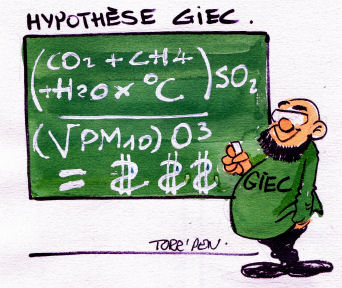 HYPOTHÈSE GIEC.
(CO2 + CH4
+H2O x °C) SO2
(√PM10) O3
= $ $ $
GIEC